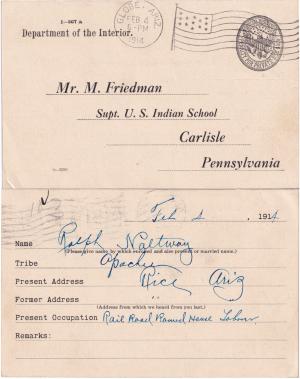 1-607 a
Department of the Interior.
GLOBE, ARIZ.
FEB 4
5-PM
1914
Mr. M. Friedman
Supt. U. S. Indian School
Carlisle
Pennsylvania
Feb 4, 1914
Name Ralph Naltway
(Please give name by which enrolled and also present or married name.)
Tribe Apache
Present Address Rice Ariz
Former Address "
(Address from which we heard from you last.)
Present Occupation Rail Road House Labor
Remarks: